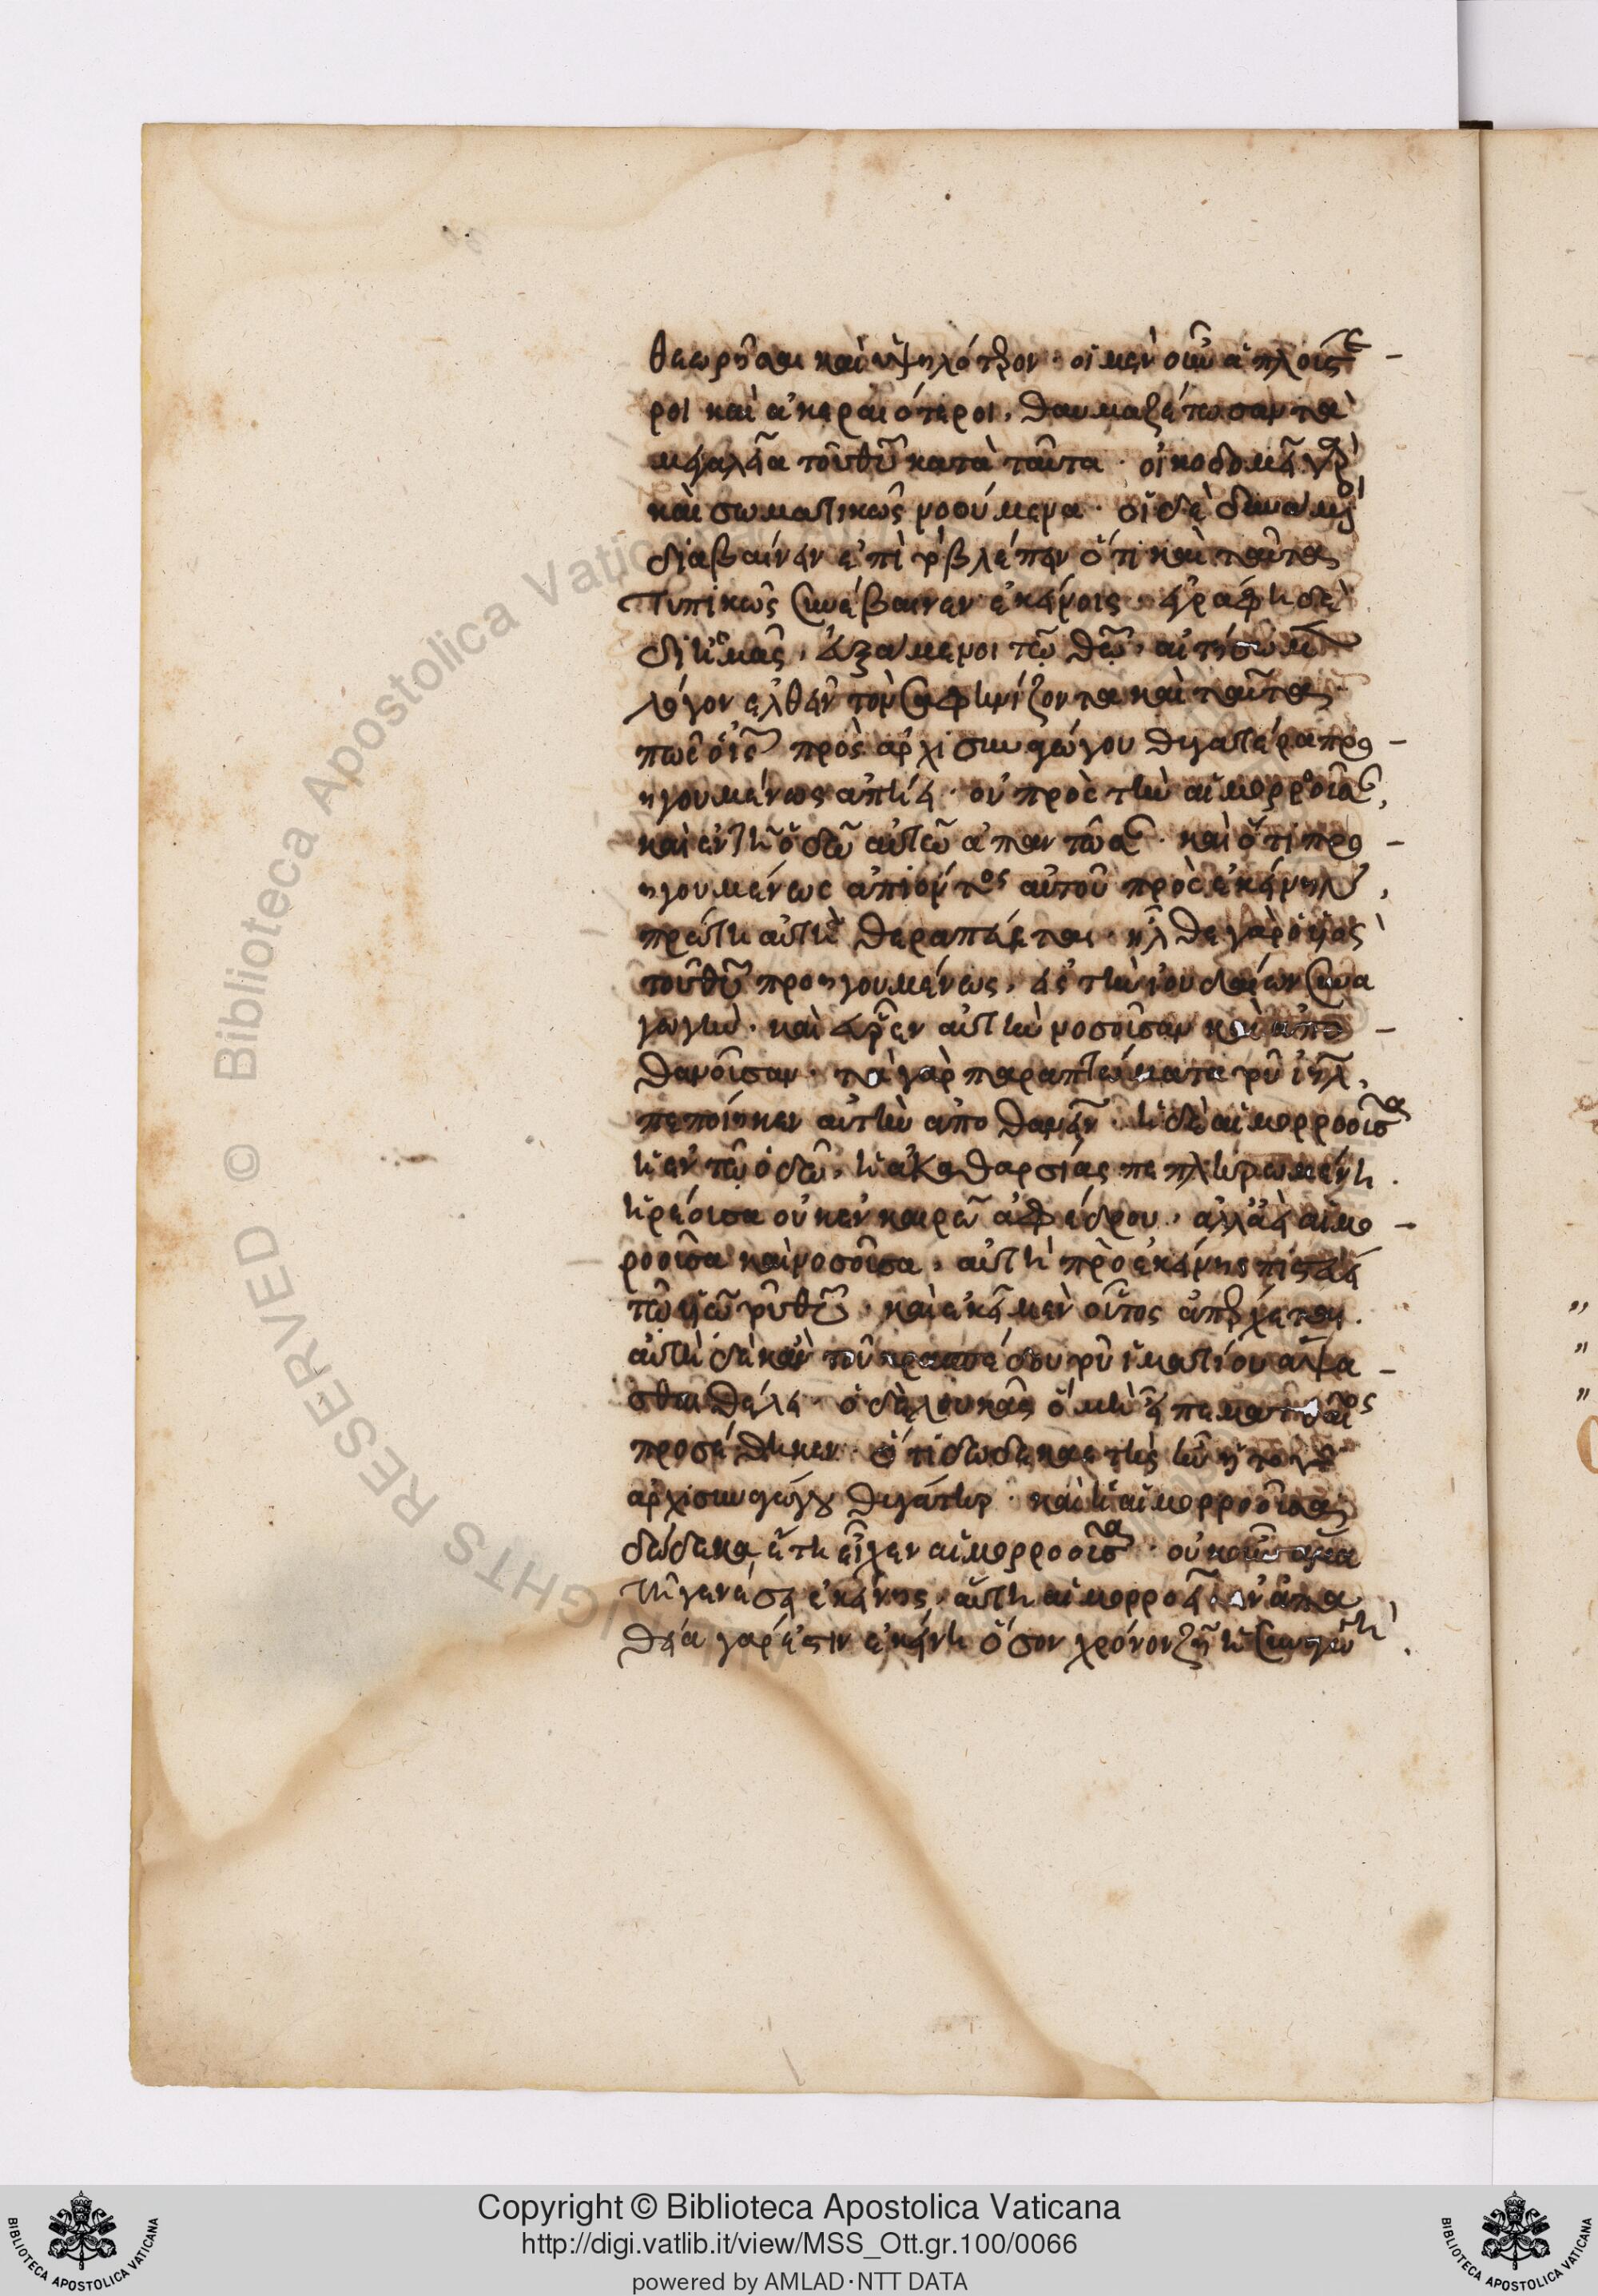 θεωρῆσαι καὶ ὑψηλότερον· οἱ μὲν οὖν ἁπλούστε-
ροι καὶ ἀκεραιότεροι, θαυμαζέτωσαν τὰ
μεγαλεῖα τοῦ θυ κατὰ ταῦτα· οἰκοδομεῖ γὰρ
καὶ σωματικῶς νοούμενα· οἱ δὲ δυνάμενοι
διαβαίνειν ἐπὶ τὸ βλέπειν ὅτι καὶ ταῦτα
τυπικῶς συνέβαινεν ἐκείνοις, ἐγράφη δὲ
δι' ἡμᾶς, εὐξάμενοι τῷ θεῷ, αἰτήσωμεν
λόγον ἐλθεῖν τὸν σαφηνίζοντα καὶ ταῦτα
πῶς ὁ ις πρὸς ἀρχισυναγώγου θυγατέρα προ-
ηγουμένως ἀπῄει· οὐ πρὸς τὴν αἱμορροοῦσαν,
καὶ ἐν τῇ ὁδῷ αὐτῷ ἀπαντῶσαν· καὶ ὅτι προ-
ηγουμένως ἀπιόντος αὐτοῦ πρὸς ἐκείνην,
πρώτη αὕτη θεραπεύεται· ἦλθε γὰρ ὁ υἱὸς
τοῦ θυ προηγουμένως, εἰς τὴν ἰουδαίων συνα
γωγὴν· καὶ εὗρεν αὐτὴν νοσοῦσαν καὶ ἀπο-
θανοῦσαν· τὰ γὰρ παραπτώματα τοῦ ιηλ,
πεποίηκεν αὐτὴν ἀποθανεῖν· ἡ δὲ αἱμορροοῦσα
ἡ ἐν τῷ ὁδῷ, ἡ ἀκαθαρσίας πεπληρωμένη.
ἡ ῥέουσα οὐκ ἐν καιρῷ ἀφέδρου, ἀλλὰ ἀεὶ αἱμο-
ροοῦσα καὶ νοσοῦσα, αὐτὴ πρὸ ἐκείνης πιστεύει
τῷ υἱῷ τοῦ θυ· καὶ ἐκεῖ μὲν οὗτος ἀπέρχεται.
αὐτὴ δὲ κἂν τοῦ κρασπέδου τοῦ ἱματίου ἅψα-
σθαι θέλει· ὁ δὲ λουκᾶς ὃ μὴ εἶπε ματθαῖος
προσέθηκεν· ὅτι δωδεκαετὴς ἦν ἡ τοῦ
ἀρχισυναγώγου θυγάτηρ· καὶ ἡ αἱμορροοῦσα
δώδεκα ἔτη εἶχεν αἱμορροοῦσα· οὐκοῦν ἅμα
τῇ γενέσει ἐκείνης, αὕτη αἱμορροεῖ· ἐν ἀπει
θείᾳ γάρ ἐστιν ἐκείνη ὅσον χρόνον ζῇ ἡ συναγωγή.
Copyright © Biblioteca Apostolica Vaticana
http://digi.vatlib.it/view/MSS_Ott.gr.100/0066
powered by AMLAD·NTT DATA
BIBLIOTECA APOSTOLICA VATICANA
BIBLIOTECA APOSTOLICA VATICANA